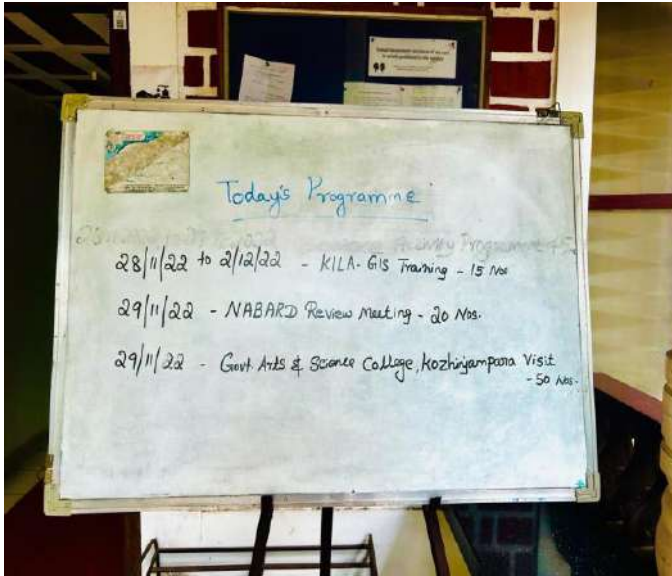 Today's Programme
28/11/22 to 2/12/22 - KILA-GIS Training - 15 Nos
29/11/22 - NABARD Review Meeting - 20 Nos.
29/11/22 - Govt. Arts & Science College, Kozhinjampara Visit
- 50 Nos.